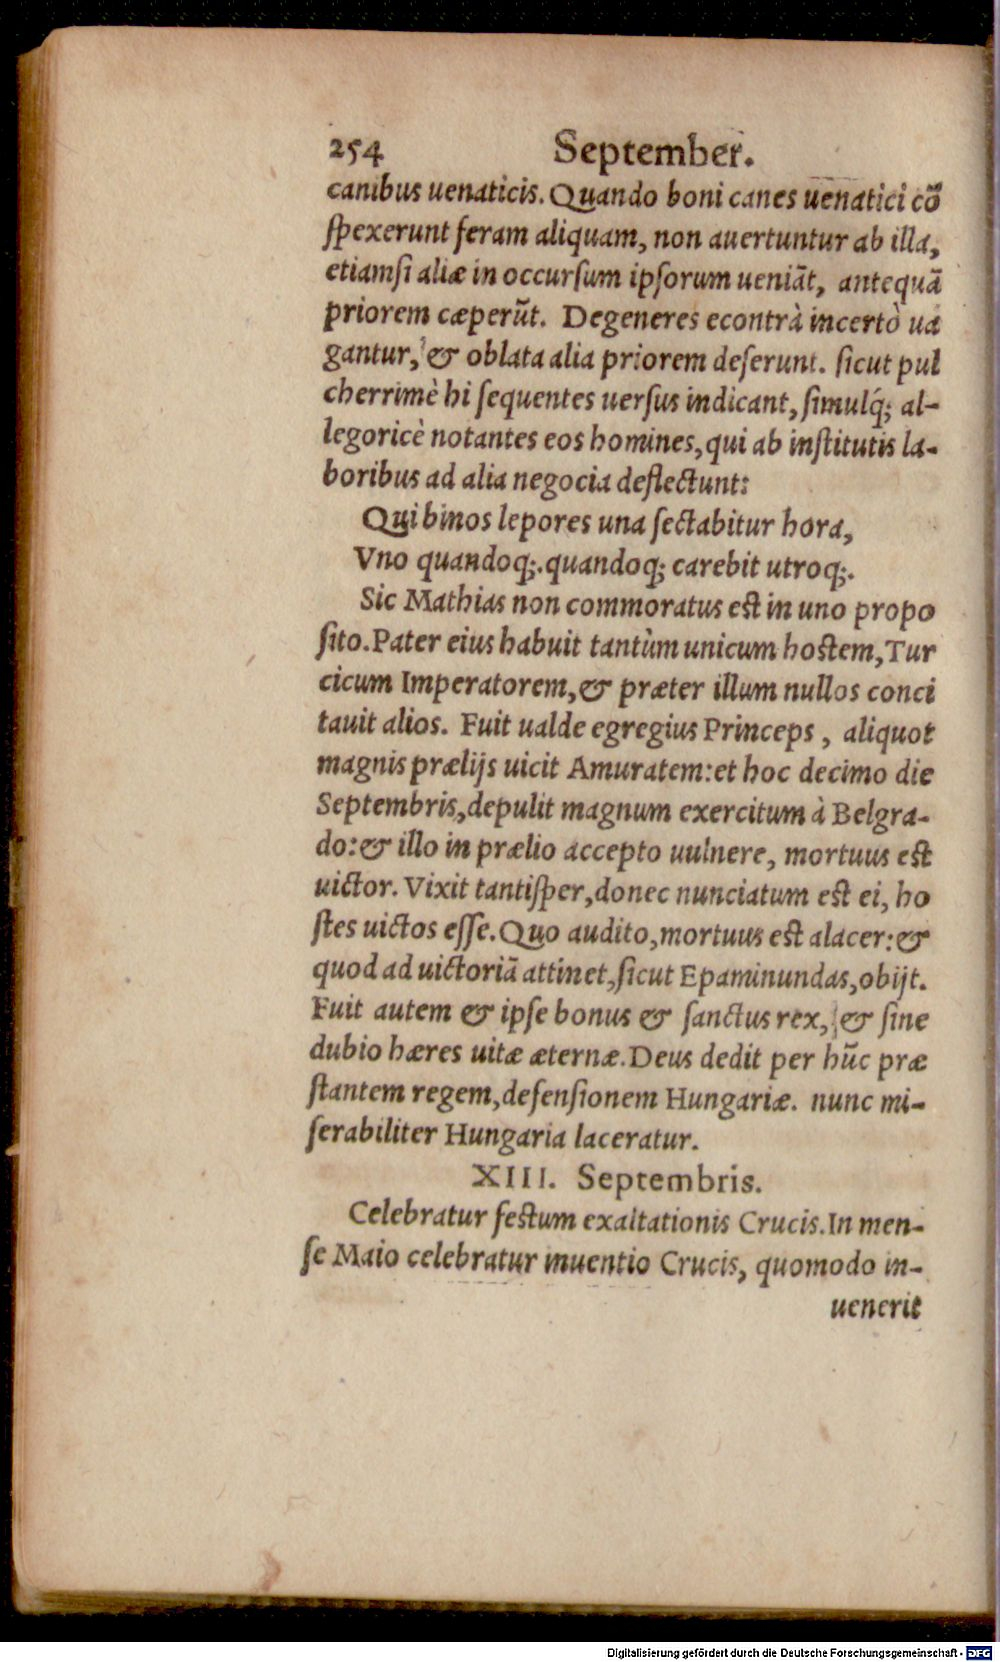 254 September.
canibus uenaticis. Quando boni canes uenatici cõ
ſpexerunt feram aliquam, non auertuntur ab illa,
etiamſi aliæ in occurſum ipſorum ueniãt, antequã
priorem cæperũt. Degeneres econtrà incertò ua
gantur, & oblata alia priorem deſerunt. ſicut pul
cherrimè hi ſequentes uerſus indicant, ſimulq́; al-
legoricè notantes eos homines, qui ab inſtitutis la-
boribus ad alia negocia deflectunt:
Qui binos lepores una ſectabitur hora,
Vno quandoq;. quandoq; carebit utroq;.
Sic Mathias non commoratus eſt in uno propo
ſito. Pater eius habuit tantùm unicum hoſtem, Tur
cicum Imperatorem, & præter illum nullos conci
tauit alios. Fuit ualde egregius Princeps, aliquot
magnis prælijs uicit Amuratem: et hoc decimo die
Septembris, depulit magnum exercitum à Belgra-
do: & illo in prælio accepto uulnere, mortuus eſt
uictor. Vixit tantiſper, donec nunciatum eſt ei, ho
ſtes uictos eſſe. Quo audito, mortuus eſt alacer: &
quod ad uictoriã attinet, ſicut Epaminundas, obijt.
Fuit autem & ipſe bonus & ſanctus rex, & ſine
dubio hæres uitæ æternæ. Deus dedit per hũc præ
ſtantem regem, defenſionem Hungariæ. nunc mi-
ſerabiliter Hungaria laceratur.
XIII. Septembris.
Celebratur feſtum exaltationis Crucis. In men-
ſe Maio celebratur inuentio Crucis, quomodo in-
uenerit
Digitalisierung gefördert durch die Deutsche Forschungsgemeinschaft - DFG